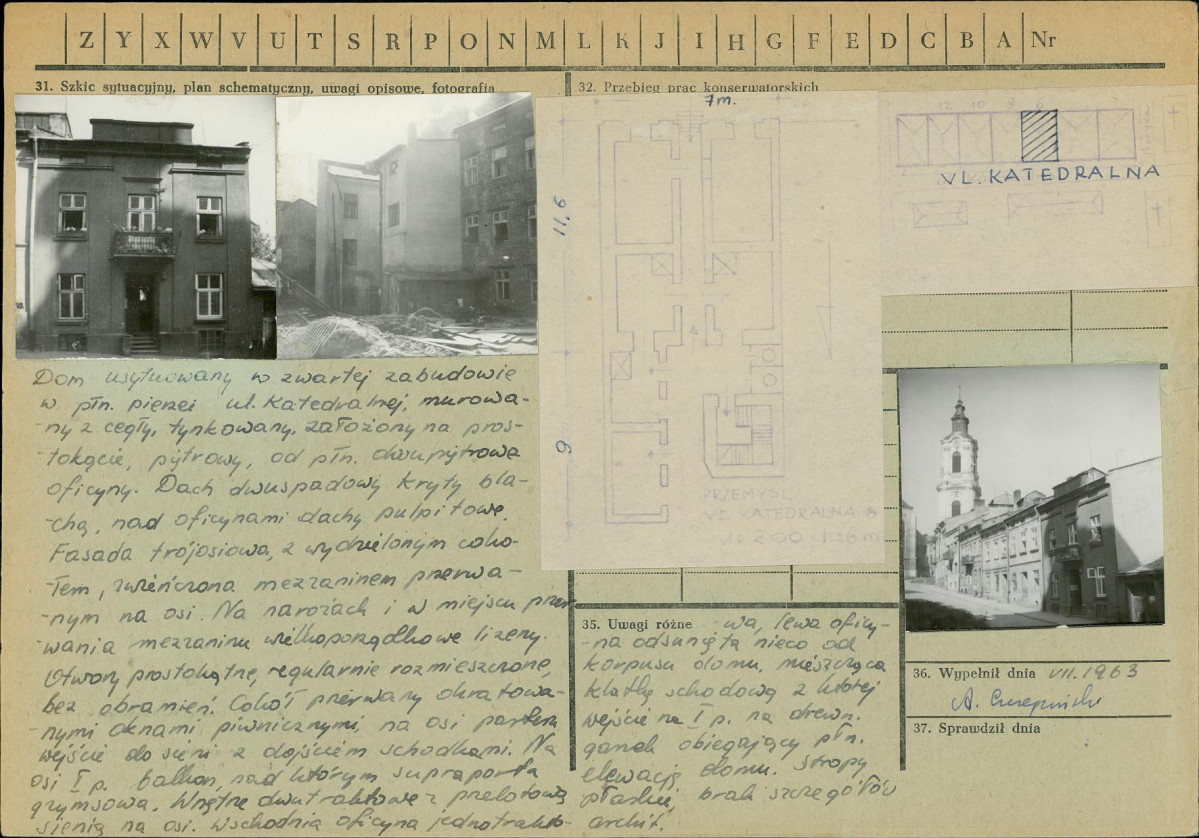 Z Y X W V U T S R P O N M L K J I H G F E D C B A Nr
31. Szkic sytuacyjny, plan schematyczny, uwagi opisowe, fotografia
32. Przebieg prac konserwatorskich
7m.
11,6
9
PRZEMYŚL
UL KATEDRALNA 6
1:200
12 10 8 6
UL. KATEDRALNA
Dom usytuowany w zwartej zabudowie
w płn. pierzei ul. Katedralnej, murowa-
-ny z cegły, tynkowany, założony na pros-
-tokącie, piętrowy, od płn. dwupiętrowa
oficyny. Dach dwuspadowy kryty bla-
-chą, nad oficynami dachy pulpitowe.
Fasada trójosiowa, z wydzielonym coko-
-łem, zwieńczona mezzaninem przerwa-
-nym na osi. Na narożach i w miejscu przer-
wania mezzaninu wielkoporządkowe lizeny.
Otwory prostokątne, regularnie rozmieszczone,
bez obramień. Cokół przerwany okratowa-
-nymi oknami piwnicznymi, na osi parteru
wejście do sieni z dojściem schodkami. Na
osi I p. balkon, nad którym supraporta
gzymsowa. Wnętrze dwutraktowe z przelotową
sienią na osi. Wschodnia oficyna jednotrakto-
35. Uwagi różne
wa, lewa oficy-
-na odsunięta nieco od
korpusu domu, mieszcząca
klatkę schodową z której
wejście na I p. na drewn.
ganek obiegający płn.
elewację domu. Stropy
płaskie, brak szczegółów
archit.
36. Wypełnił dnia VII. 1963
37. Sprawdził dnia